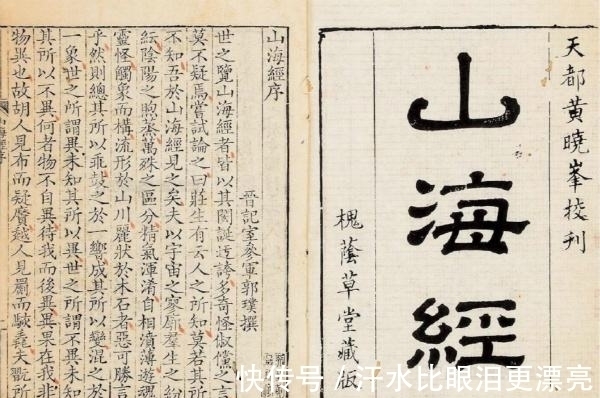 天都黃曉峯校刊
山海經
槐蔭草堂藏版
山海經序
晉記室參軍郭璞撰
世之覽山海經者皆以其閎誕迂誇多奇怪俶儻之
莫不疑焉嘗試論之曰莊生有云人之所知莫若其所
不知吾於山海經見之矣夫以宇宙之寥廓羣生之紛
紜陰陽之煦蒸萬殊之區分精氣渾淆自相濆薄遊魂
靈怪觸象而構流形於山川麗狀於木石者惡可勝言
乎然則總其所以乖鼓之於一響成其所以變混之於
一象世之所謂異未知其所以異世之所謂不異未知
其所以不異何者物不自異待我而後異異果在我非
物異也故胡人見布而疑黂越人見罽而駭毳夫翫所
山海經序
快传号 / 汗水比眼泪更漂亮